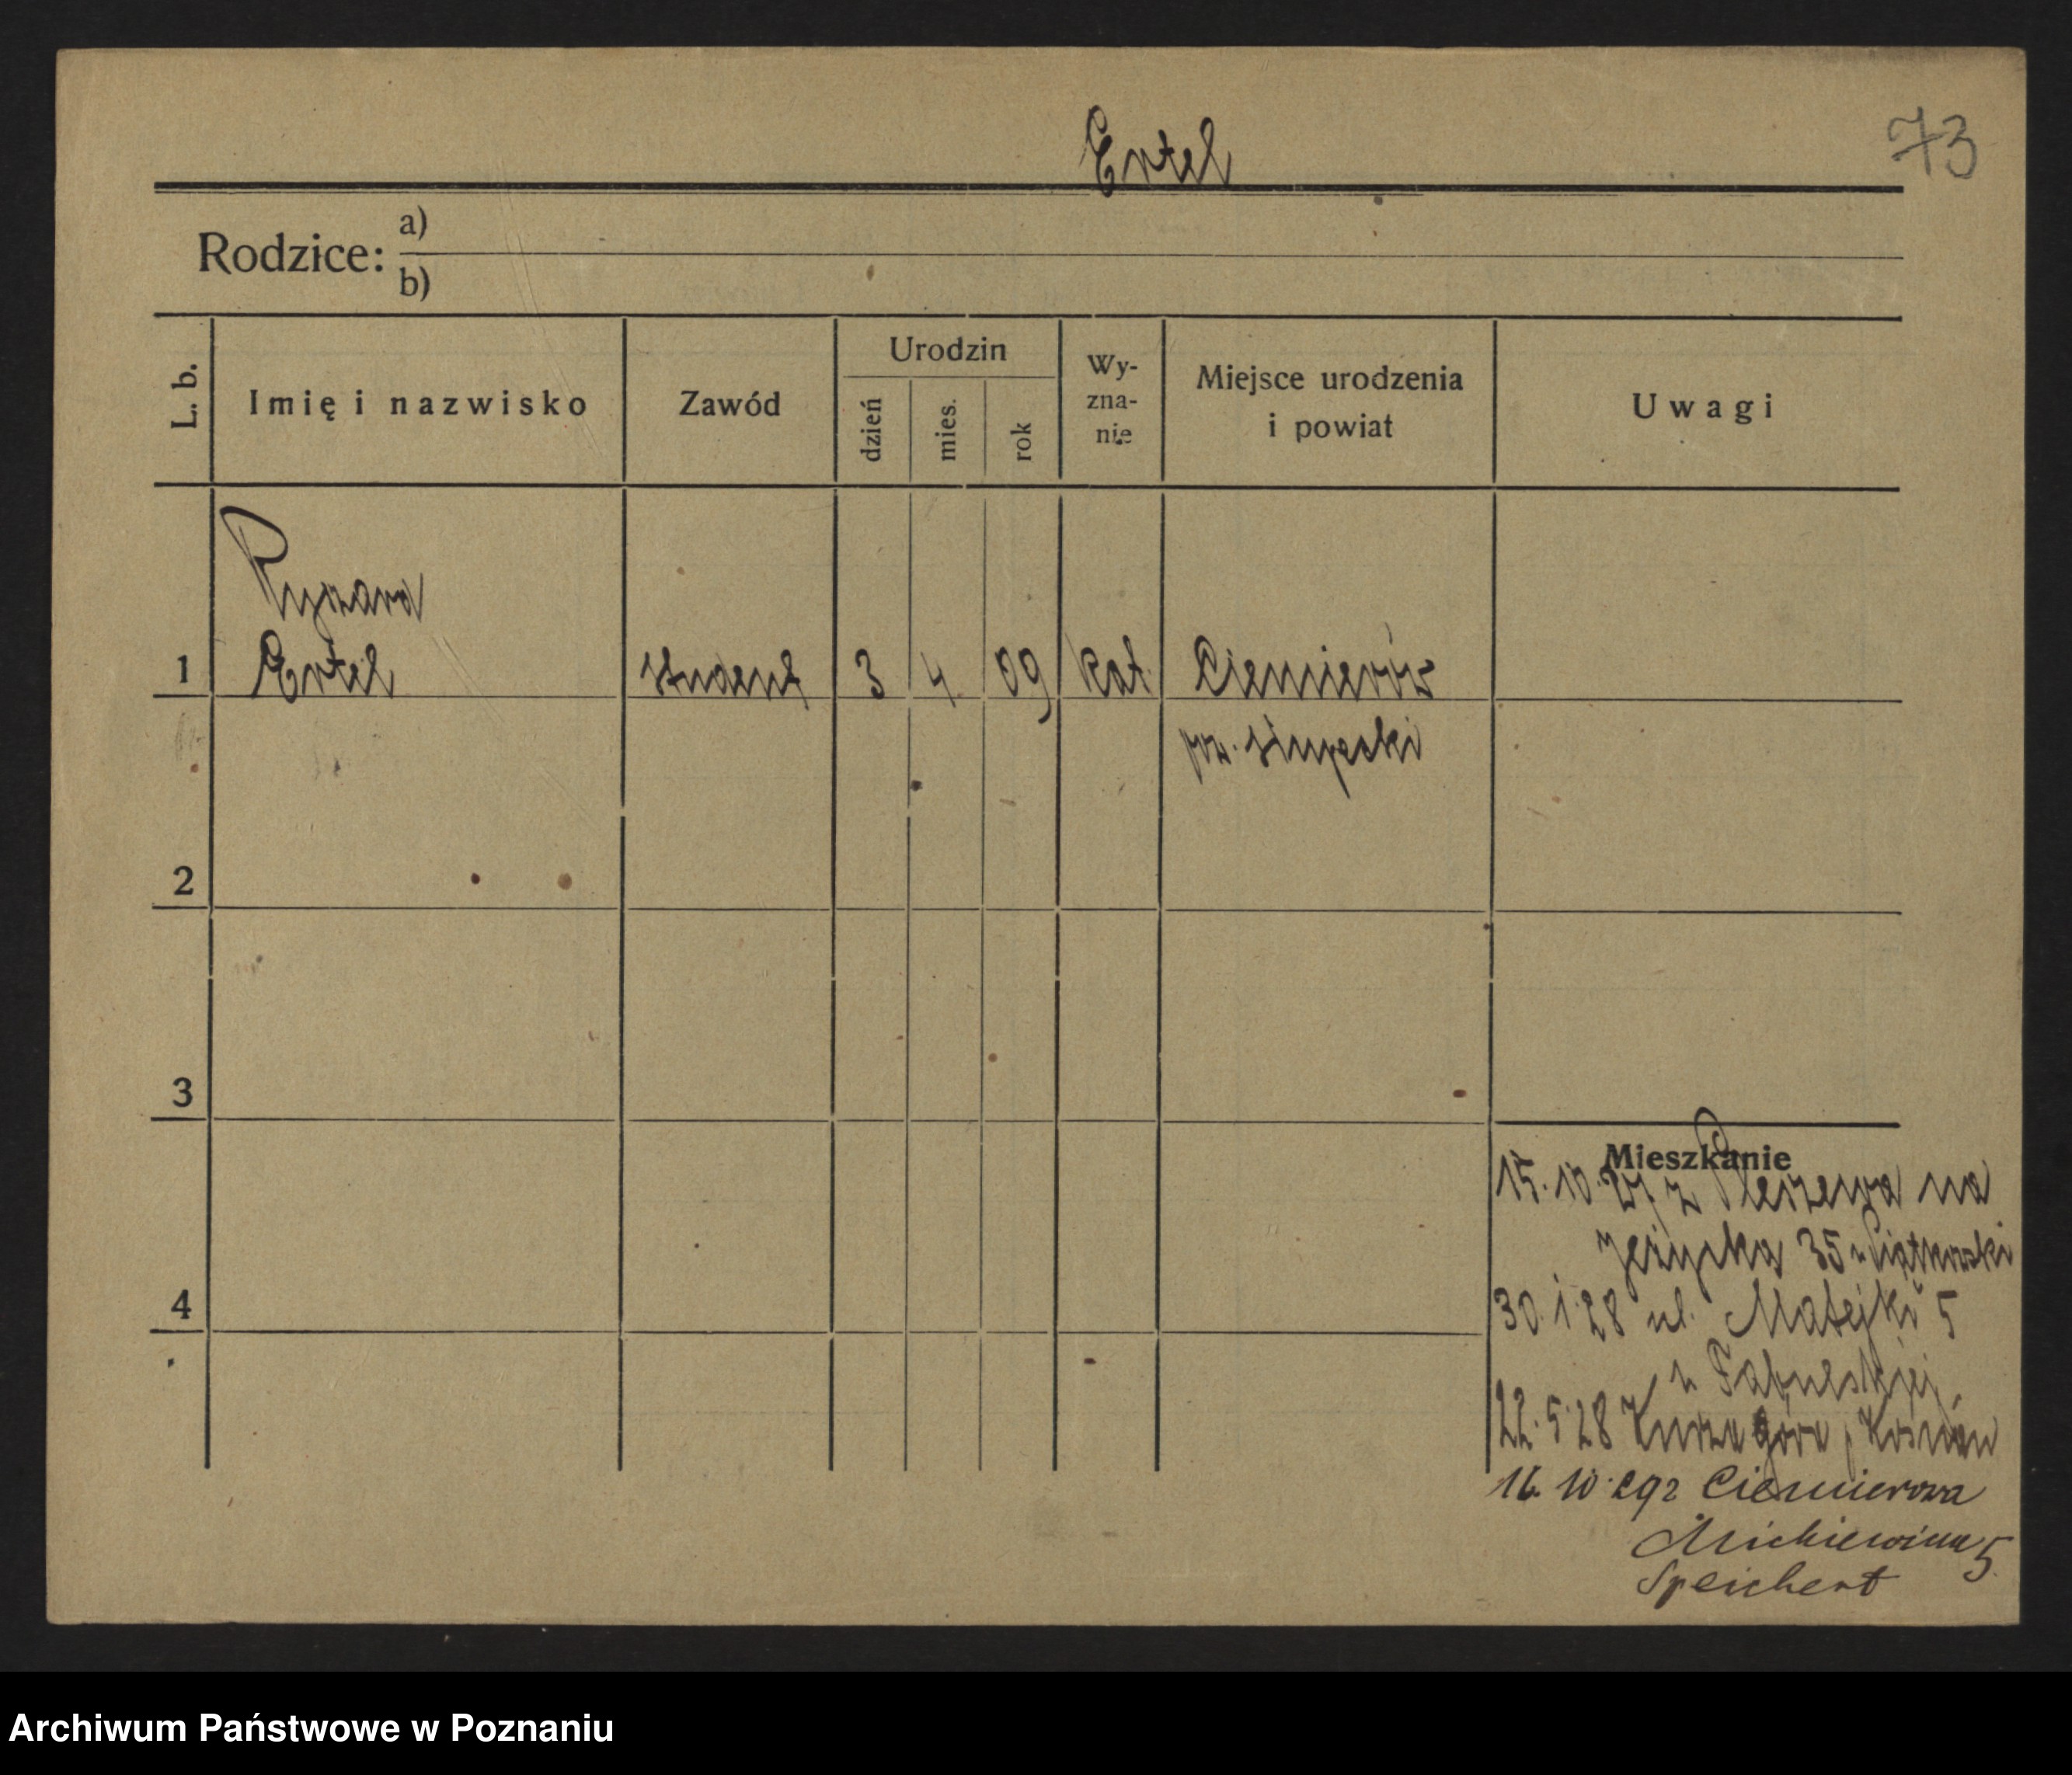 Ertel
73
Rodzice: a)
b)
L. b.
Imię i nazwisko
Zawód
Urodzin
dzień
mies.
rok
Wy-
zna-
nie
Miejsce urodzenia
i powiat
Uwagi
Ryszard
1 Ertel student 3 4 09 kat. Ciemierów
pow. słupecki
2
3
4
Mieszkanie
15.10.27 z Pleszewa na
Jeżycka 35 u Piątkowski
30.1.28 ul. Matejki 5
u
22.5.28 Kurzagóra, Kościan
16.10.29 z Ciemierowa
Mickiewicza 5
Speichert
Archiwum Państwowe w Poznaniu